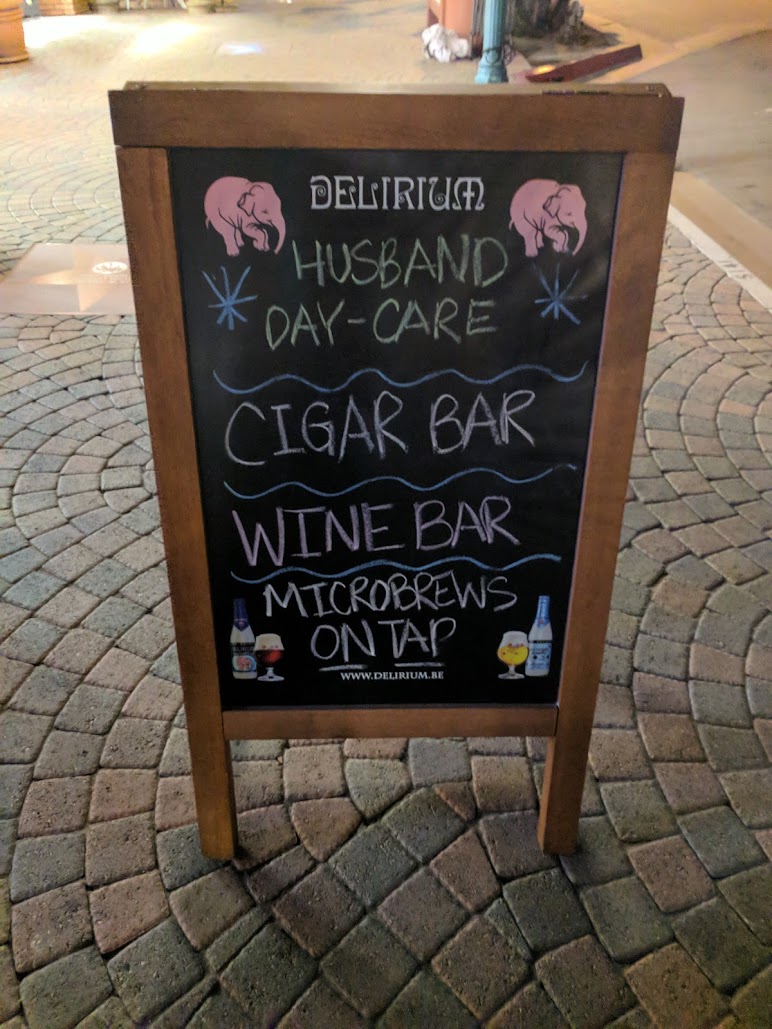 DELIRIUM
HUSBAND
DAY-CARE
CIGAR BAR
WINE BAR
MICROBREWS
ON TAP
WWW.DELIRIUM.BE